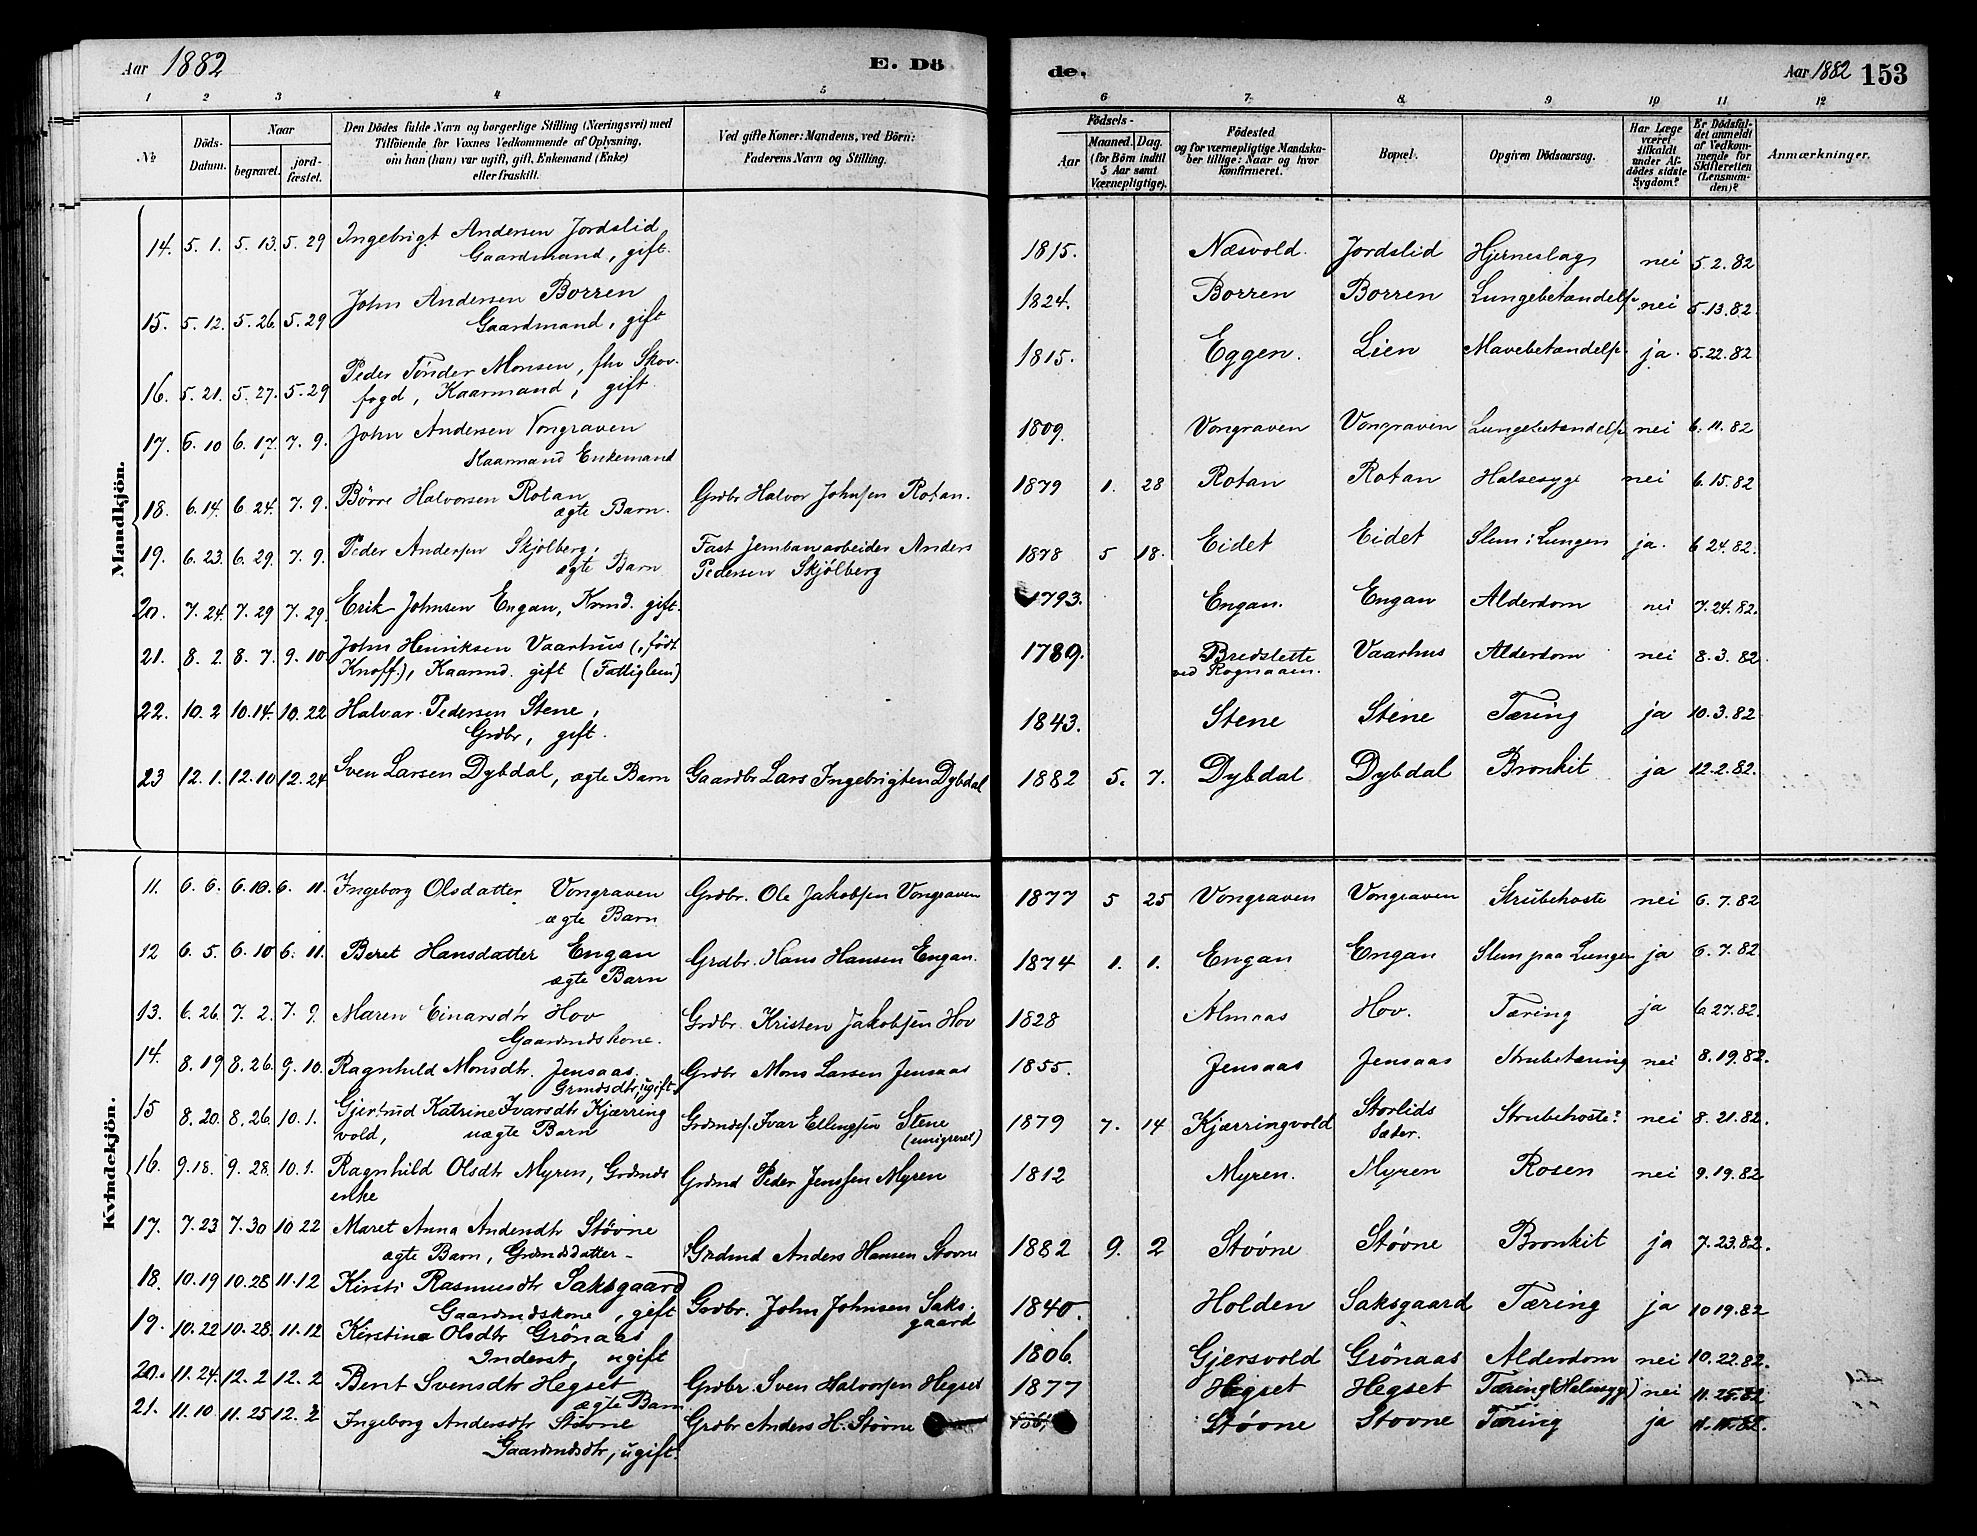 Aar 1882
E. Dö
de.
Aar 1882 153
1 2 3 4 5 6 7 8 9 10 11 12
№ Döds-Datum. Naar begravet. jordfæstet. Den Dödes fulde Navn og borgerlige Stilling (Næringsvei) med Tilföiende for Voxnes Vedkommende af Oplysning, om han (hun) var ugift, gift, Enkemand (Enke) eller fraskilt. Ved gifte Koner: Mandens, ved Börn: Faderens Navn og Stilling. Födsels- Aar Maaned. Dag. (for Börn indtil 5 Aar samt Værnepligtige). Födested og for værnepligtige Mandskaber tillige: Naar og hvor konfirmeret. Bopæl. Opgiven Dödsaarsag. Har Læge været tilkaldt under Afdödes sidste Sygdom? Er Dödsfaldet anmeldt af Vedkommende for Skifteretten (Lensmanden)? Anmærkninger.
Mandkjön.
14. 5. 1. 5. 13. 5. 29 Ingebrigt Andersen Jordslid 1815. Næsvold. Jordslid Hjerneslag nei 5.2.82
Gaardmand, gift.
15. 5. 12. 5. 26. 5. 29 John Andersen Borren 1824. Borren Borren Lungebetændelse nei 5.13.82
Gaardmand, gift
16. 5. 21. 5. 27. 5. 29 Peder Tönder Monsen, fhv Skov- 1815. Eggen. Lien Mavebetændelse. ja. 5.22.82
fogd, Kaarmand, gift
17. 6. 10 6. 17. 7. 9. John Andersen Vongraven 1809. Vongraven Vongraven Lungebetændelse nei 6.11.82
Kaarmand Enkemand
18. 6. 14. 6. 24. 7. 9. Börre Halvorsen Rotan Grdbr Halvor Johnsen Rotan. 1879 1. 28 Rotan Rotan Halsesyge nei 6.15.82
ægte Barn.
19. 6. 23. 6. 29. 7. 9. Peder Andersen Skjölberg, Fast Jernbanarbeider Anders 1878 5 18. Eidet Eidet Slim i Lungen ja. 6 24.82.
ægte Barn Pedersen Skjölberg
20. 7. 24. 7. 29 7. 29. Erik Johnsen Engan, Krmd. gift. 1793. Engan. Engan Alderdom nei 7.24.82.
21. 8. 2. 8. 7. 9. 10. John Henriksen Vaarhus (, födt 1789. Bredslette Vaarhus Alderdom nei 8.3.82
Knoff.), Kaarmd. gift (Fattiglem) ved Rognaaen.
22. 10. 2 10. 14. 10. 22 Halvar Pedersen Stene, 1843. Stene Stene Tæring ja 10.3.82
Grdbr, gift.
23 12. 1. 12. 10 12. 24. Sven Larsen Dybdal, ægte Barn Gaardbr Lars Ingebrigtsen Dybdal 1882 5. 7. Dybdal Dybdal Bronkit ja 12.2.82.
Kvindekjön.
11. 6. 6. 6. 10. 6. 11. Ingeborg Olsdatter Vongraven Grdbr. Ole Jakobsen Vongraven 1877 5 25 Vongraven Vongraven Strubehoste nei 6.7.82
ægte Barn
12 6. 5. 6. 10 6. 11. Beret Hansdatter Engan Grdbr. Hans Hansen Engan. 1874 1. 1. Engan Engan Slim paa Lungen ja 6.7.82
ægte Barn
13. 6. 26. 7. 2. 7. 9. Maren Einarsdtr Hov Grdbr. Kristen Jakobsen Hov 1828 Almaas Hov. Tæring ja 6 27.82.
Gaardmdskone.
14. 8. 19 8. 26. 9. 10. Ragnhild Monsdtr. Jensaas. Grdbr Mons Larsen Jensaas 1855. Jensaas Jensaas Strubetæring nei 8.19.82.
Grmdsdtr, ugift.
15 8. 20. 8. 26. 10. 1. Gjertrud Katrine Ivarsdtr Kjærring Grdmds. Ivar Ellingsen Stene 1879 7. 14 Kjærringvold Storlids Strubehoste? nei 8.21.82.
vold, uægte Barn (emigreret) Sæter.
16. 9. 18. 9. 28. 10. 1. Ragnhild Olsdtr Myren, Grdmds Grdmd Peder Jenssen Myren 1812 Myren. Myren Rosen nei 9.19.82.
enke
17. 7. 23 7. 30 10 22 Maret Anna Andersdtr Stövne Grdmd Anders Hansen Stövne 1882 9. 2 Stövne Stövne Bronkit ja 7.23.82.
ægte Barn, Grdmdsdatter
18. 10. 19 10. 28 11. 12 Kirsti Rasmusdtr Saksgaard Grdbr. John Johnsen Saks- 1840. Holden Saksgaard Tæring ja 10 19.82
Gaardmdskone, gift gaard
19. 10. 22 10. 28. 11. 12 Kirstina Olsdtr Grönaas 1806. Gjersvold Grönaas Alderdom nei 10.22.82.
Inderst, ugift
20. 11. 24. 12. 2 12. 2 Berit Svensdtr Hegset Grdbr. Sven Halvorsen Hegset 1877 Hegset Hegset Tæring (Halssyge) nei 11.25.82
ægte Barn
21. 11. 10. 11. 25 12. 2 Ingeborg Andersdtr Stövne Grdbr Anders H. Stövne Stövne Stövne Tæring ja 11.11.82.
Gaardmdsdtr, ugift.